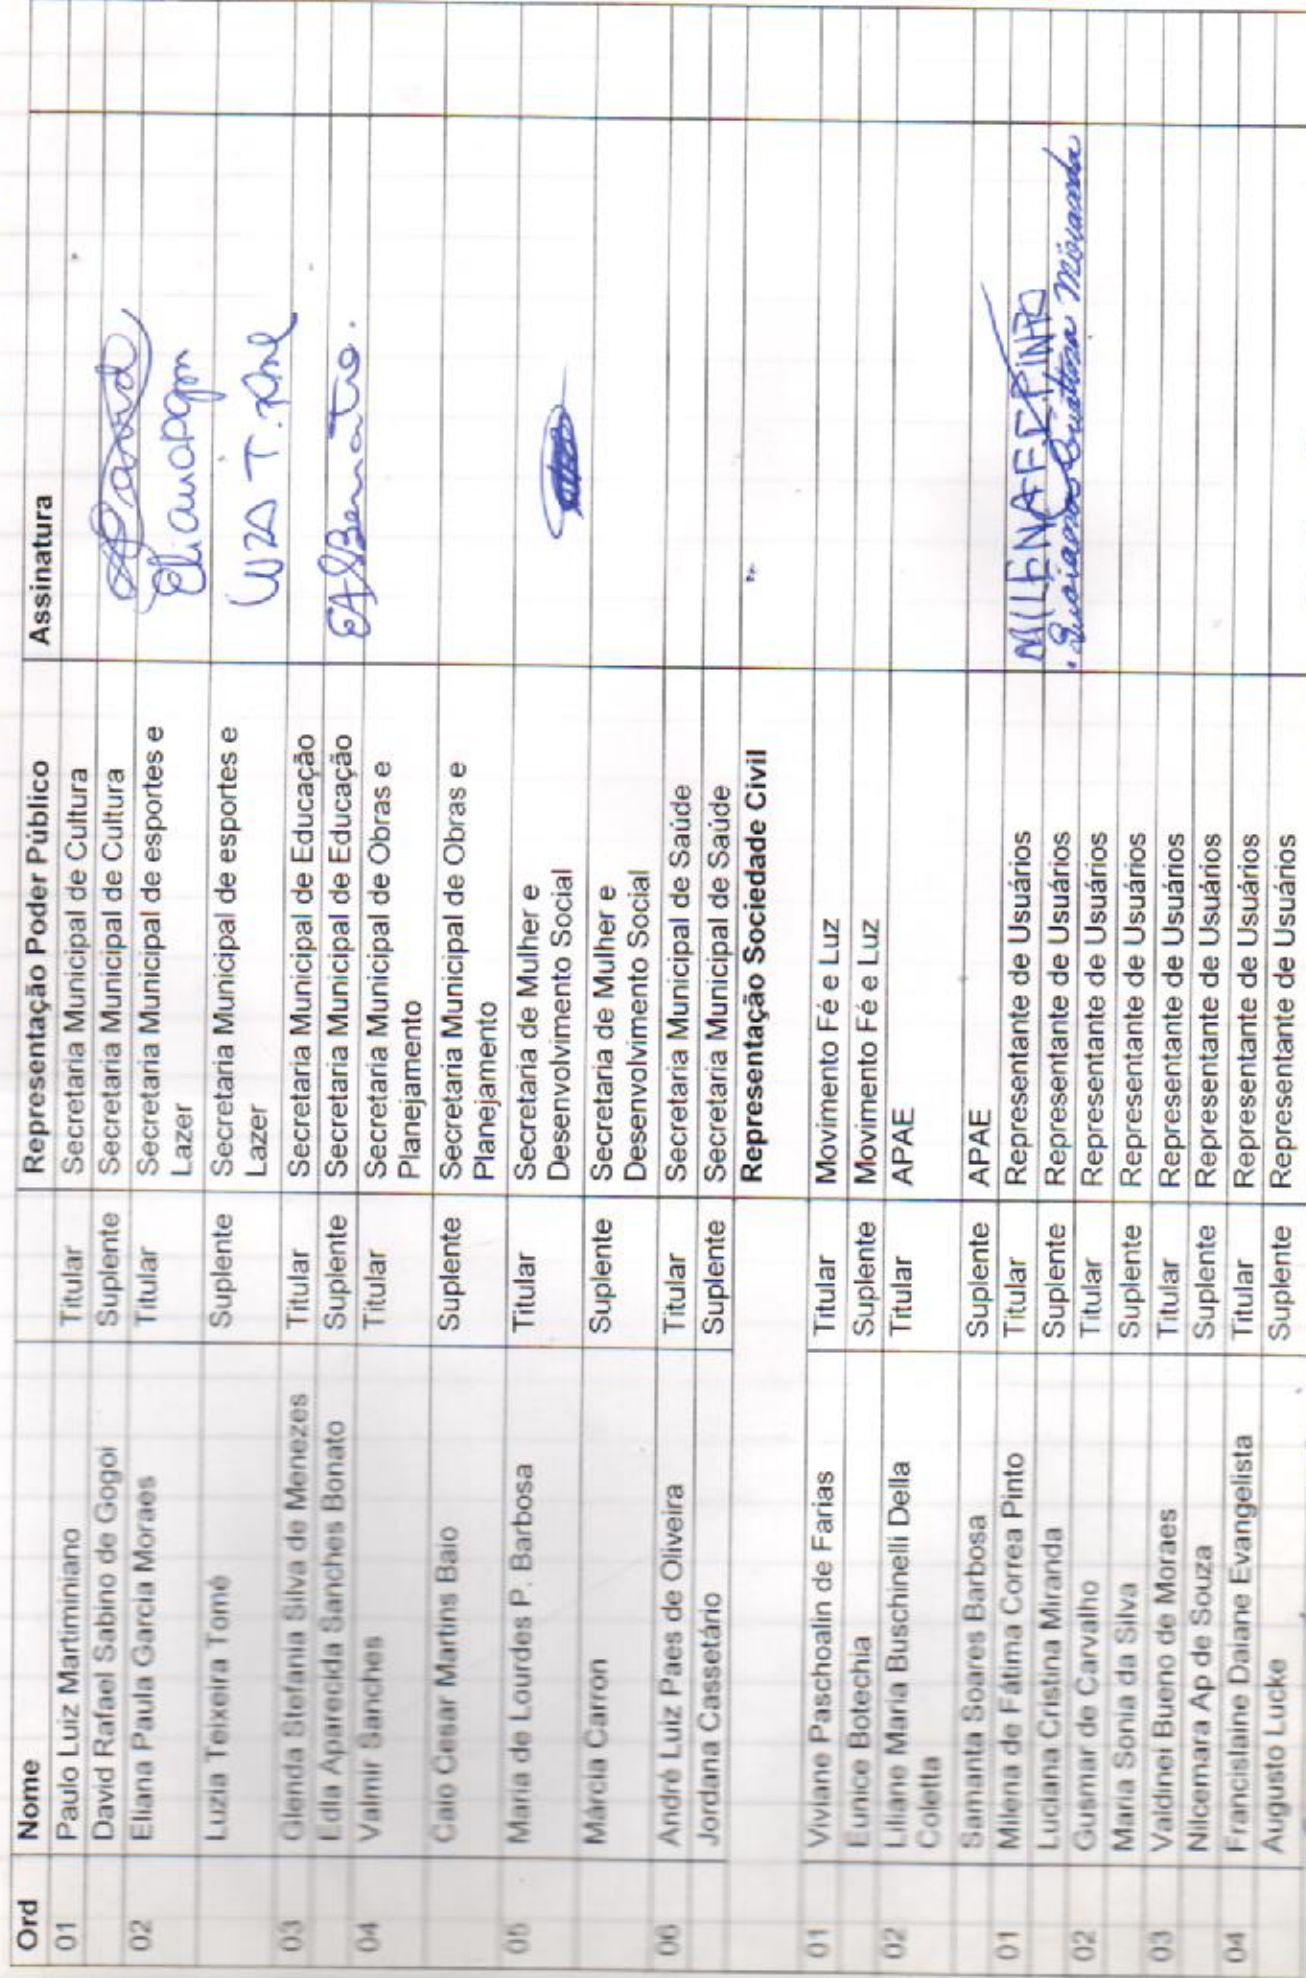 Ord Nome Representação Poder Público Assinatura
01 Paulo Luiz Martiminiano Titular Secretaria Municipal de Cultura
David Rafael Sabino de Gogoi Suplente Secretaria Municipal de Cultura
02 Eliana Paula Garcia Moraes Titular Secretaria Municipal de esportes e
Lazer
Luzia Teixeira Tomé Suplente Secretaria Municipal de esportes e
Lazer
03 Glenda Stefania Silva de Menezes Titular Secretaria Municipal de Educação
Eda Aparecida Sanches Bonato Suplente Secretaria Municipal de Educação
04 Valmir Sanches Titular Secretaria Municipal de Obras e
Planejamento
Caio Cesar Martins Baio Suplente Secretaria Municipal de Obras e
Planejamento
05 Maria de Lourdes P. Barbosa Titular Secretaria de Mulher e
Desenvolvimento Social
Márcia Carron Suplente Secretaria de Mulher e
Desenvolvimento Social
06 André Luiz Paes de Oliveira Titular Secretaria Municipal de Saúde
Jordana Cassetário Suplente Secretaria Municipal de Saúde
Representação Sociedade Civil
01 Viviane Paschoalin de Farias Titular Movimento Fé e Luz
Eunice Botechia Suplente Movimento Fé e Luz
02 Liliane Maria Buschinelli Della Titular APAE
Coletta
Samanta Soares Barbosa Suplente APAE
01 Milena de Fátima Correa Pinto Titular Representante de Usuários MILENA F PINTO
Luciana Cristina Miranda Suplente Representante de Usuários
02 Gusmar de Carvalho Titular Representante de Usuários
Maria Sonia da Silva Suplente Representante de Usuários
03 Valdinei Bueno de Moraes Titular Representante de Usuários
Nilcemara Ap de Souza Suplente Representante de Usuários
04 Francislaine Daiane Evangelista Titular Representante de Usuários
Augusto Lucke Suplente Representante de Usuários